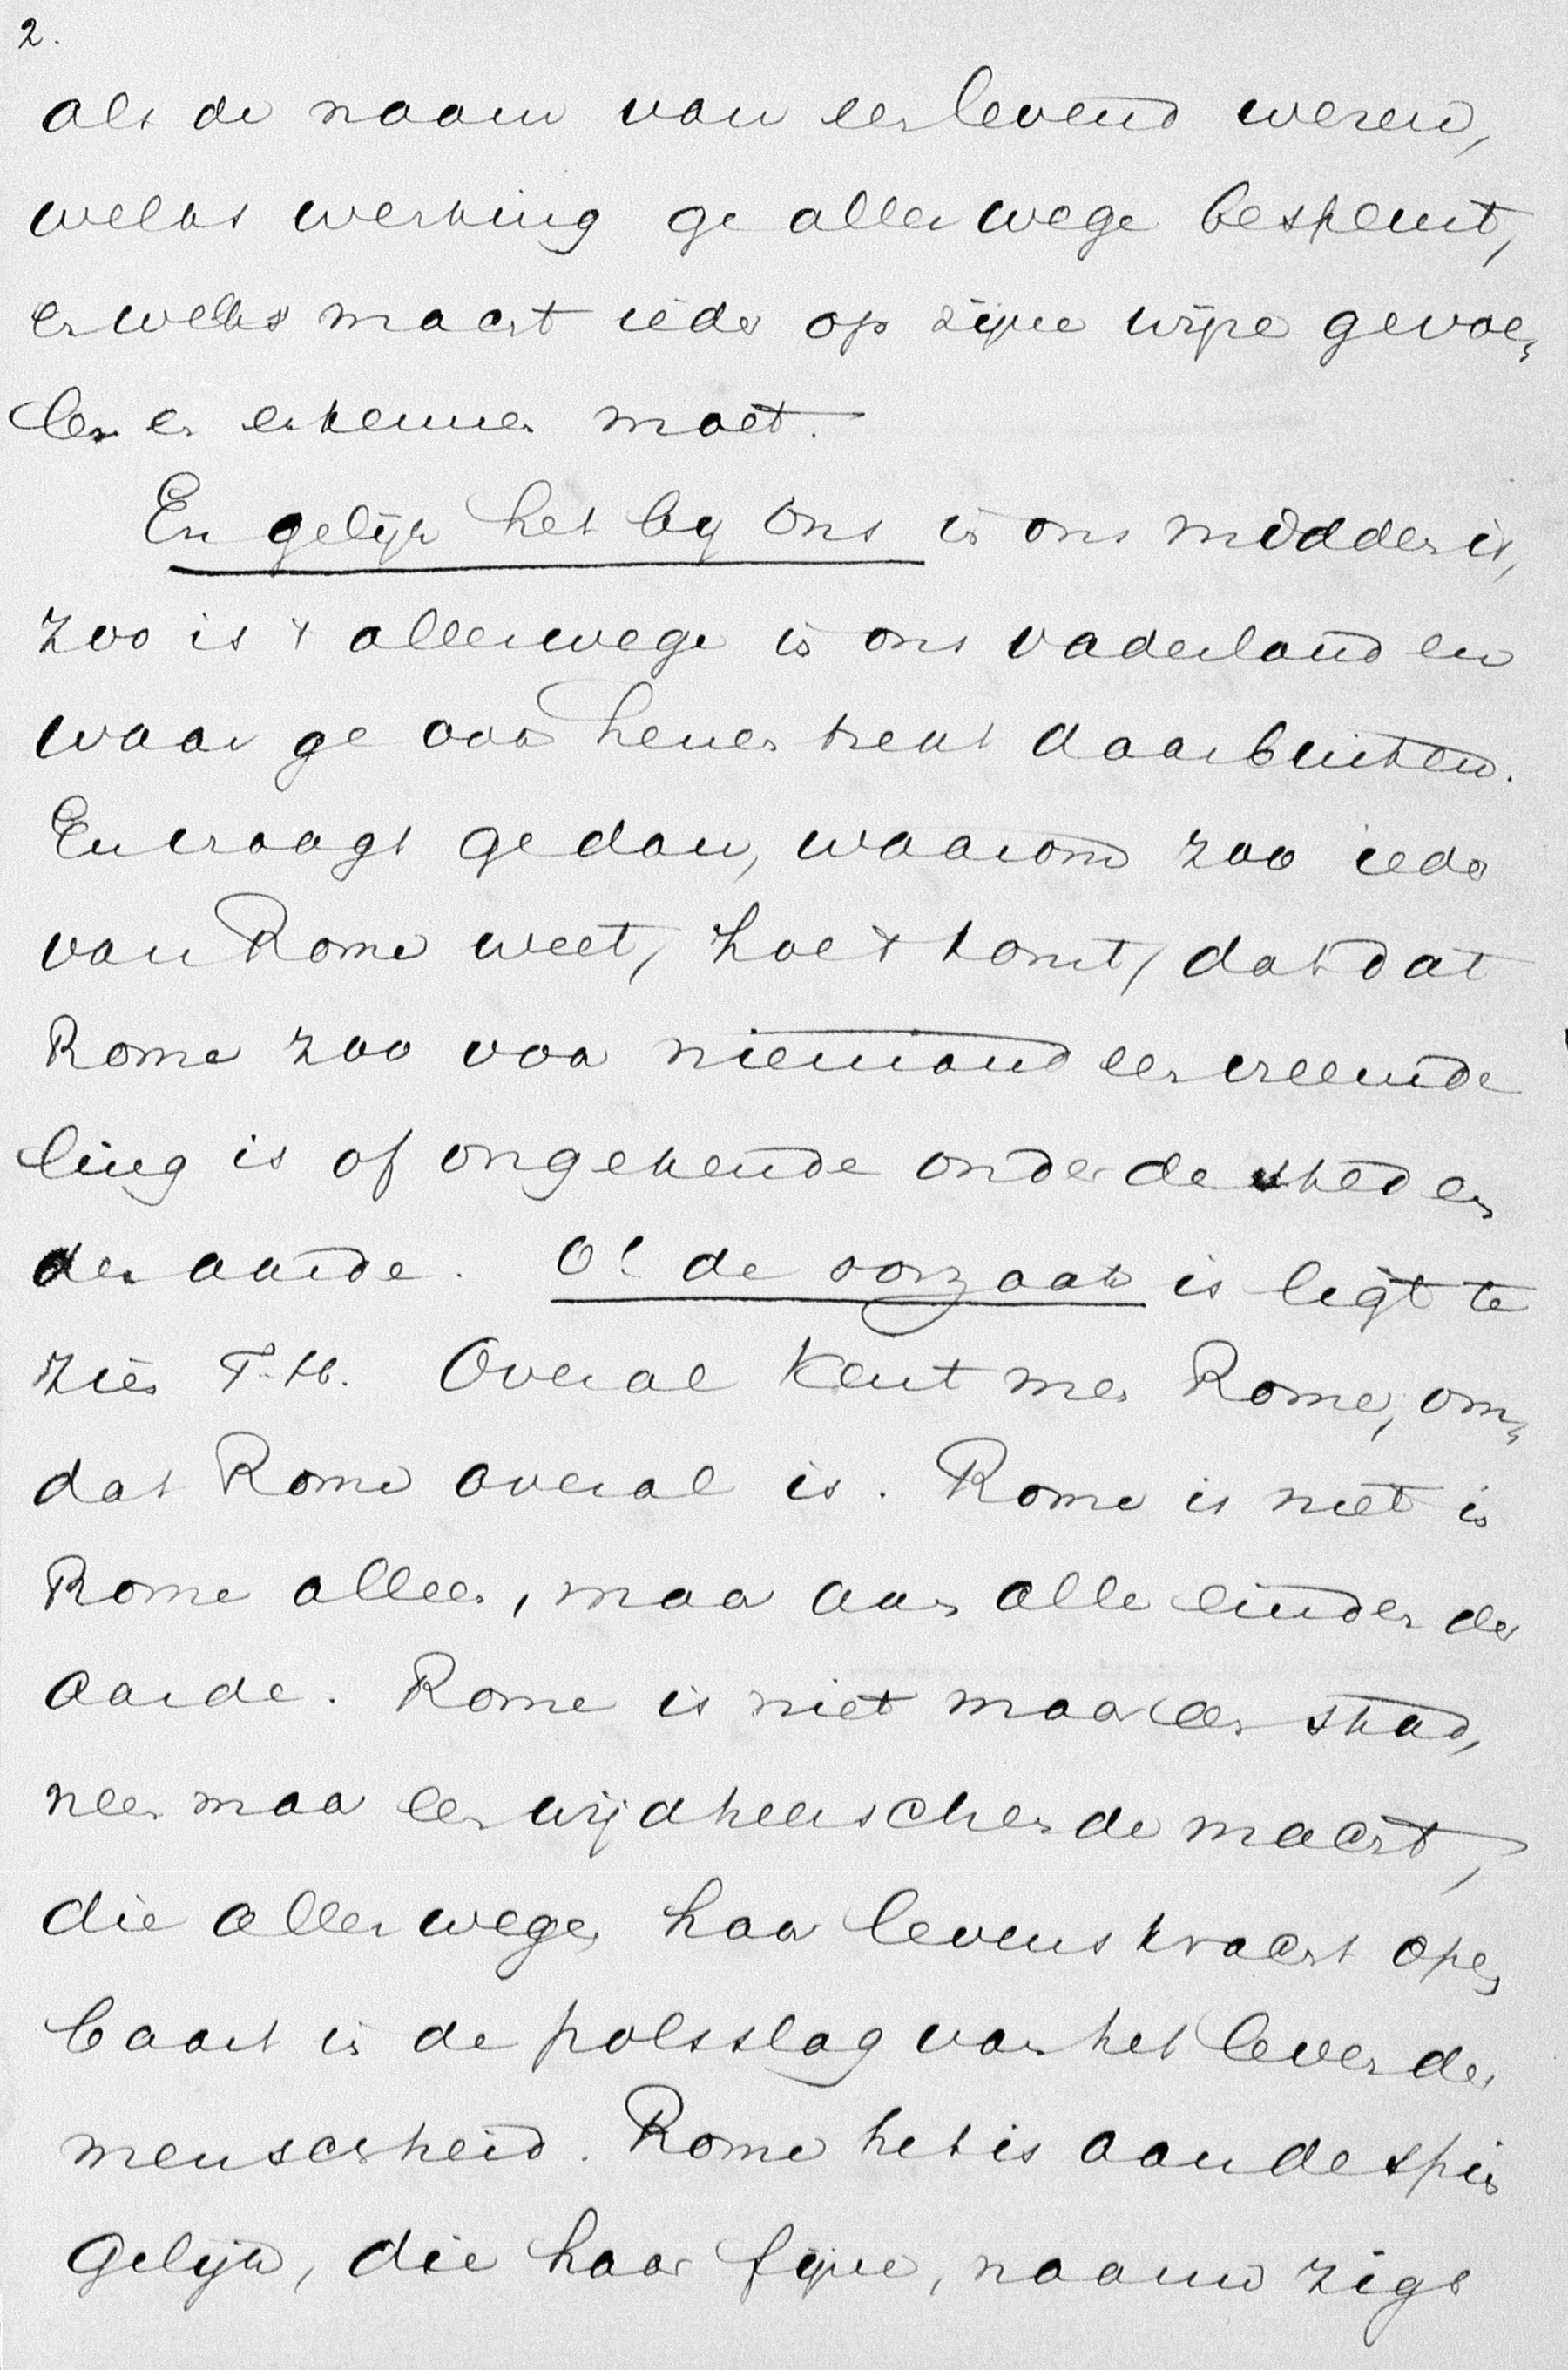 2.
als de naam van een levend wezen,
welks werking ge allerwege bespeurt,
en welks macht ieder op zijne wijze gevoe„
len en erkennen moet.
En gelijk het bij ons in ons midden is,
zoo is 't allerwege in ons vaderland en
waar ge ook henen trekt daarbuiten.
En vraagt ge dan, waarom zoo ieder
van Rome weet, hoe 't komt, dat dat
Rome zoo voor niemand een vreemde
ling is of ongekende onder de steden
der aarde. O! de oorzaak is ligt te
zien T. H. Overal kent men Rome, om„
dat Rome overal is. Rome is niet in
Rome alleen, maar aan alle einden der
aarde. Rome is niet maar een stad,
neen maar een wijdheerschende macht,
die allerwegen haar levenskracht open
baart in de polsslag van het leven der
menschheid. Rome het is aan de spin
gelijk, die haar fijne, naauw zigt